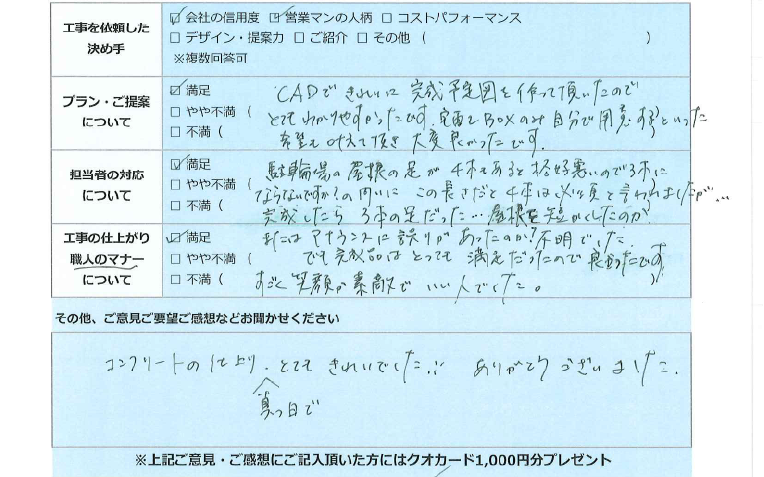 工事を依頼した
決め手
☑ 会社の信用度 ☑ 営業マンの人柄 □ コストパフォーマンス
□ デザイン・提案力 □ ご紹介 □ その他 ( )
※複数回答可
プラン・ご提案
について
☑ 満足
□ やや不満 (
□ 不満 (
CADできれいに完成予定図を作って頂いたので
とてもわかりやすかったです。宅配BOXのみ自分で用意する)といった
希望も叶えて頂き大変良かったです。
担当者の対応
について
☑ 満足
□ やや不満 (
□ 不満 (
駐輪場の屋根の足が4本もあると格好悪いので3本に
ならないですか?の問いに この長さだと4本は必須と言われましたが…
完成したら3本の足だった…屋根を短かくしたのか
工事の仕上がり
職人のマナー
について
☑ 満足
□ やや不満 (
□ 不満 (
またはアナウンスに誤りがあったのか?不明でした。
でも完成品はとっても満足だったので良かったです)
すごく笑顔が素敵でいい人でした。
その他、ご意見ご要望ご感想などお聞かせください
コンクリートの仕上り、とてもきれいでした。 ありがとうございました。
真っ白で
※上記ご意見・ご感想にご記入頂いた方にはクオカード1,000円分プレゼント